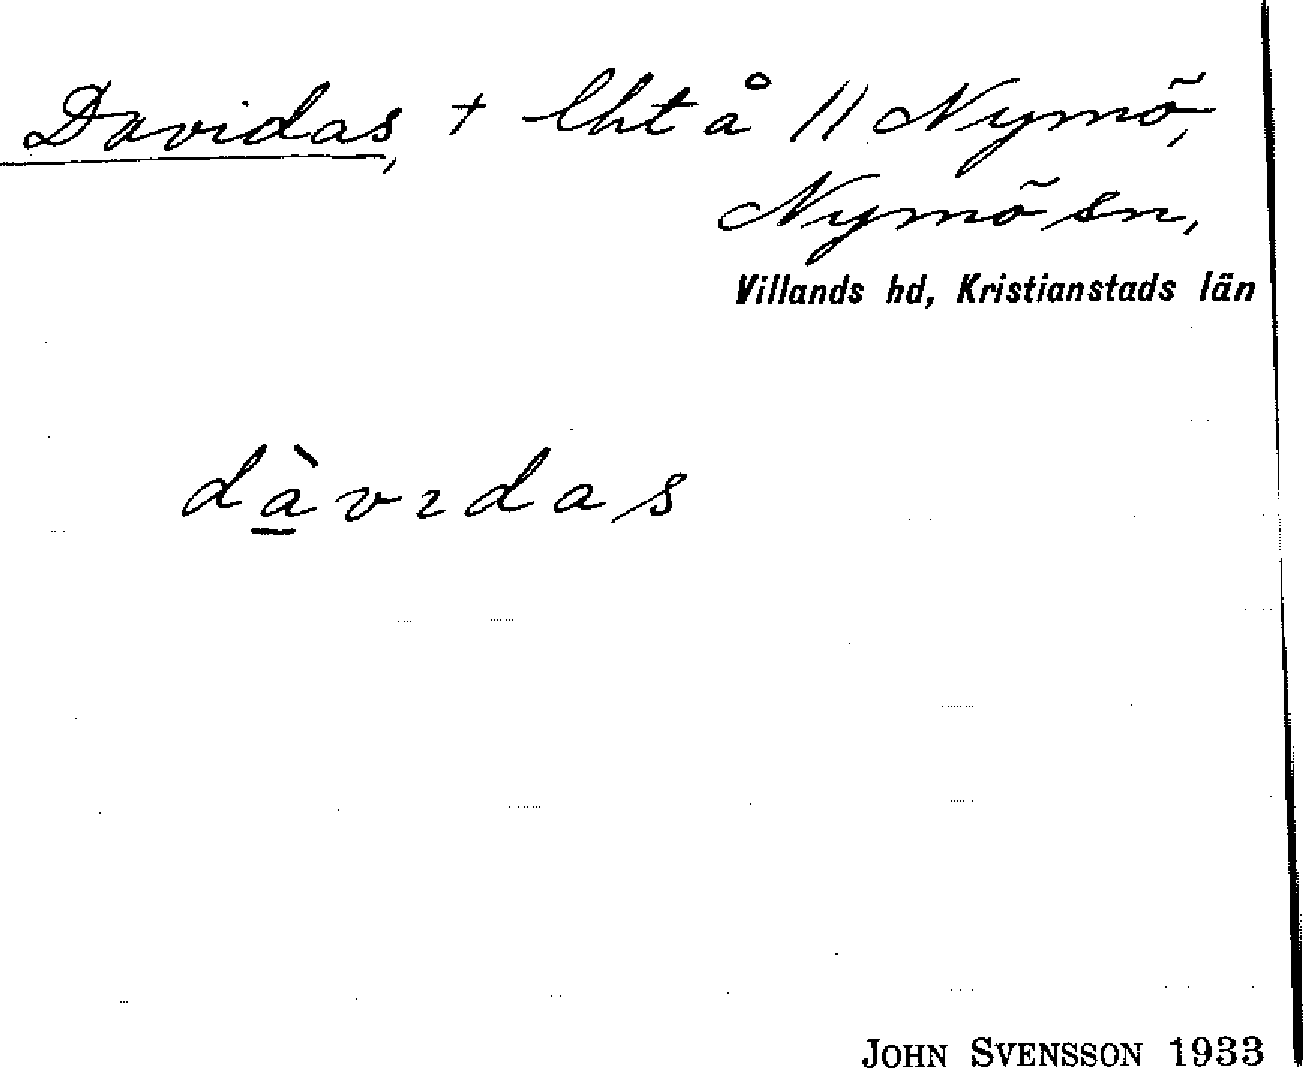 Davidas, + lht å // Nymö,
Nymö sn,
Villands hd, Kristianstads län
dàvɩdas
JOHN SVENSSON 1933